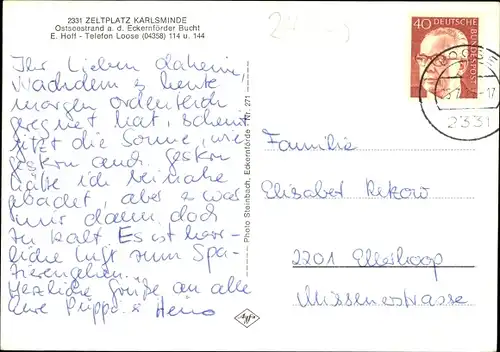 2331 ZELTPLATZ KARLSMINDE
Ostseestrand a. d. Eckernförder Bucht
E. Hoff - Telefon Loose (04358) 114 u. 144
Ihr Lieben daheim,
Nachdem es heute
morgen ordentlich
geregnet hat, scheint
jetzt die Sonne, wie
gestern auch. Gestern
hätte ich beinahe
gebadet, aber es war
mir dann doch
zu kalt. Es ist herr-
liche Luft zum Spa-
zierengehen.
Herzliche Grüße an alle
Eure Puppa & Heino
Photo Steinbach, Eckernförde Nr. 271
Agfa
40
DEUTSCHE
BUNDESPOST
2331
Familie
Elisabet Rekow
2201 Ellerhoop